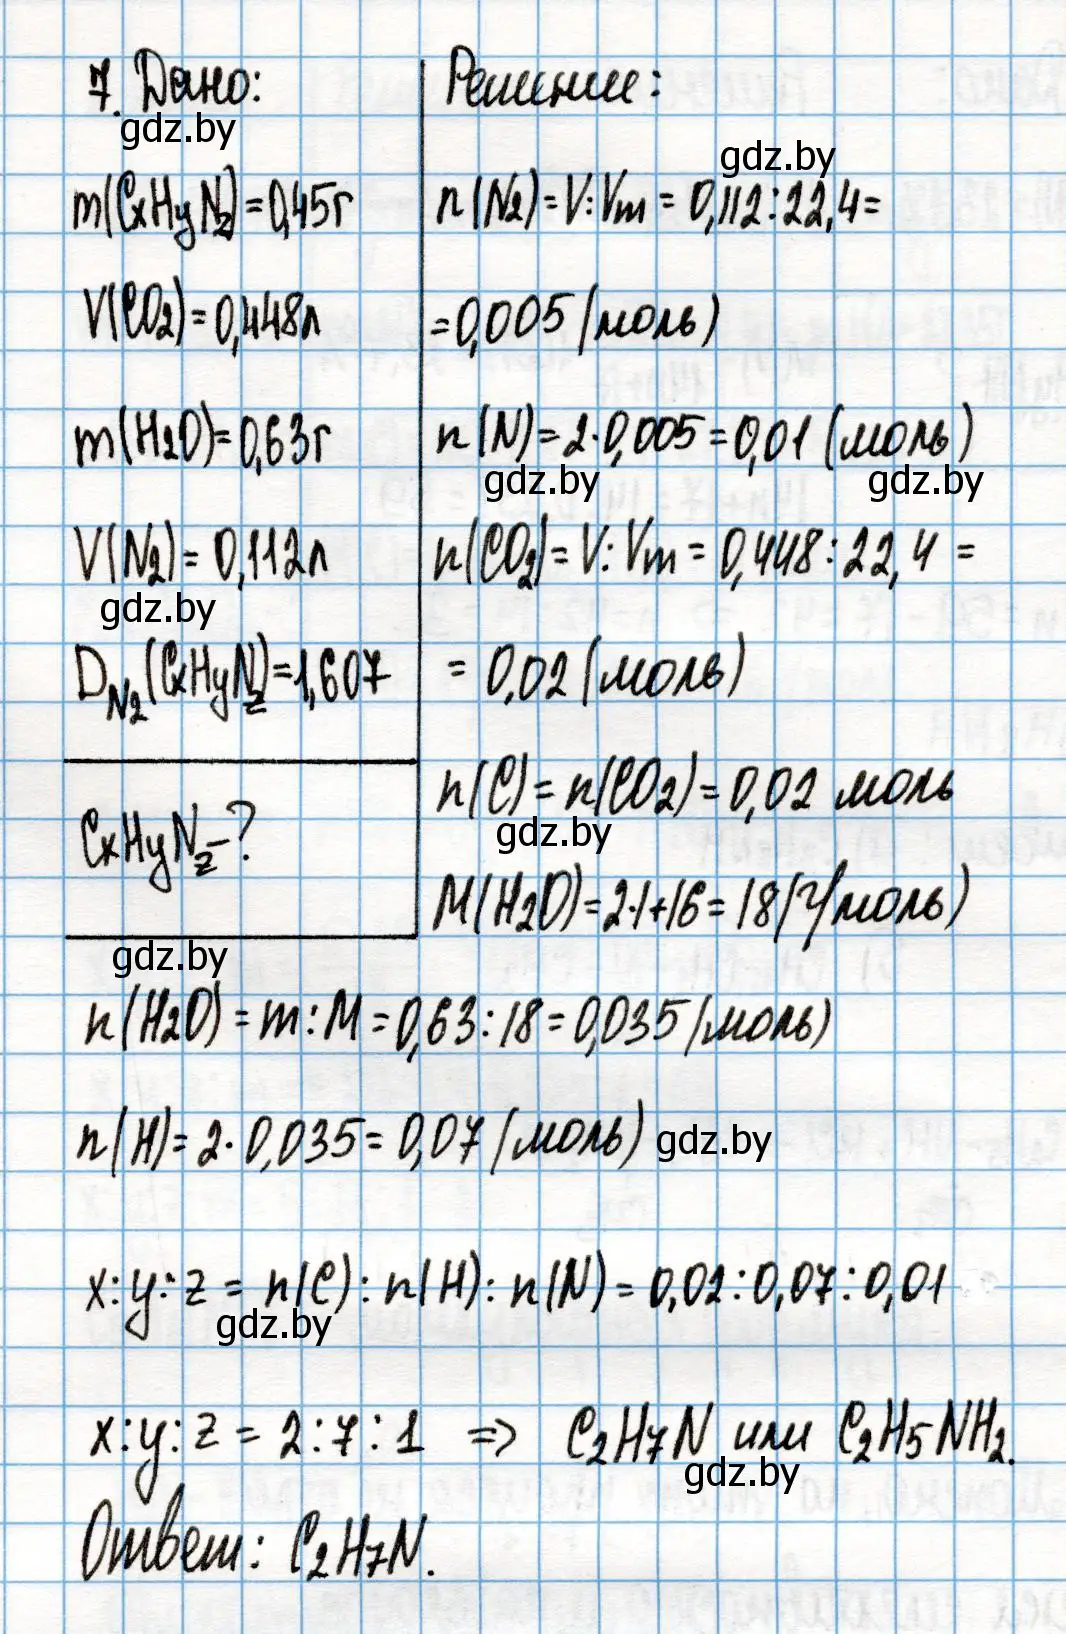 7. Дано:
gdz.by
m(CxHyNz)=0,45г
V(CO2)=0,448л
m(H2O)=0,63г
V(N2)=0,112л
gdz.by
DN2(CxHyNz)=1,607
CxHyNz-?
gdz.by
Решение:
gdz.by
n(N2)=V:Vm=0,112:22,4=
=0,005(моль)
n(N)=2·0,005=0,01(моль)
gdz.by gdz.by
n(CO2)=V:Vm=0,448:22,4=
=0,02(моль)
n(C)=n(CO2)=0,02 моль
gdz.by
M(H2O)=2·1+16=18(г/моль)
n(H2O)=m:M=0,63:18=0,035(моль)
n(H)=2·0,035=0,07(моль) gdz.by
x:y:z=n(C):n(H):n(N)=0,02:0,07:0,01
gdz.by
x:y:z=2:7:1 => C2H7N или C2H5NH2.
gdz.by
Ответ: C2H7N.